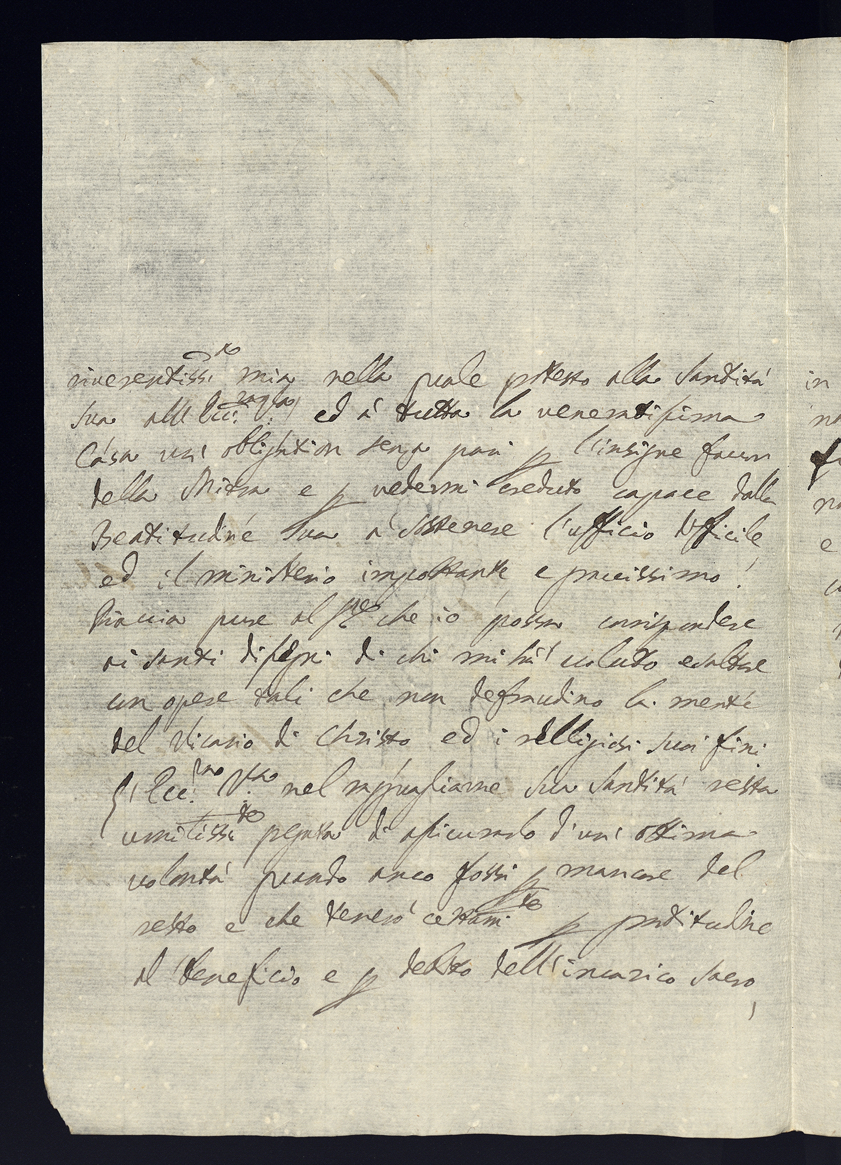 riverentissi.ma mia nella quale protesto alla Santità
Sua all' Ecc.za ed à tutta la veneratissima
Casa un' obligation senza pari p l'insigne favor
della Mitra e p vedermi creduto capace dalla
Beatitudine Sua a sostenere l'ufficio difficile
ed il ministerio importante e
Piaccia pure al che io possa corrispondere
ai santi disegni di chi mi hà voluto esaltare
con opere tali che non defraudino la mente
del Vicario di Christo ed i religiosi suoi fini
l'Ecc.za V.ra nel raguagliarne Sua Santità resta
umilissi.te pregata di assicurarlo d'un' ottima
volontà quando anco fossi p mancare del
resto e che tenerò certam.te p gratitudine
al beneficio e p debito dell'incarico sacro,
in